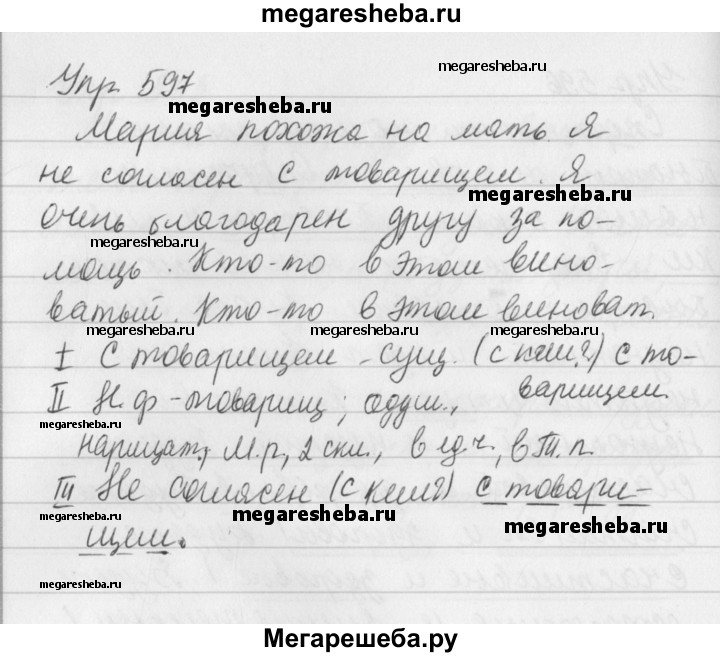 megaresheba.ru
Упр. 597 megaresheba.ru
megaresheba.ru
Мария похожа на мать. Я
не согласен с товарищем. Я
megaresheba.ru
очень благодарен другу за по-
megaresheba.ru
мощь. Кто-то в этом вино-
ватый. Кто-то в этом виноват.
megaresheba.ru megaresheba.ru megaresheba.ru
I С товарищем - сущ. (с кем?) с то-
II Н.ф - товарищ; одуш., варищем.
megaresheba.ru
нарицат., М.р, 2 скл., в ед.ч, в Т.п.
III Не согласен (с кем?) с товари-
megaresheba.ru megaresheba.ru megaresheba.ru
щем.
megaresheba.ru
Мегарешеба.ру